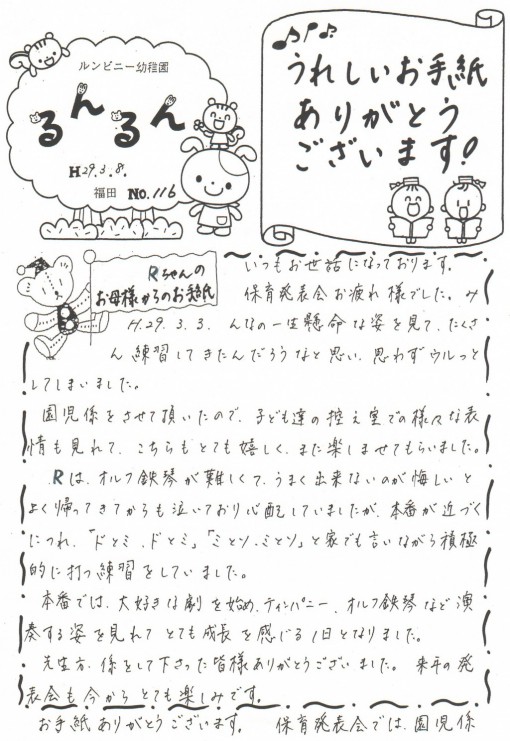 ルンビニー幼稚園
るんるん
H29.3.8.
福田 No.116
うれしいお手紙
ありがとう
ございます!
Rちゃんの
お母様からのお手紙
いつもお世話になっております。
保育発表会お疲れ様でした。み
H.29.3.3. んなの一生懸命な姿を見て、たくさ
ん練習してきたんだろうなと思い、思わずウルっと
してしまいました。
園児係をさせて頂いたので、子ども達の控え室での様々な表
情も見れて、こちらもとても嬉しく、また楽しませてもらいました。
Rは、オルフ鉄琴が難しくて、うまく出来ないのが悔しいと
よく帰ってきてからも泣いており心配していましたが、本番が近づく
につれ、「ドとミ、ドとミ」、「ミとソ、ミとソ」と家でも言いながら積極
的に打つ練習をしていました。
本番では、大好きな劇を始め、ティンパニー、オルフ鉄琴など演
奏する姿を見れて とても成長を感じる1日となりました。
先生方、係をして下さった皆様ありがとうございました。 来年の発
表会も今から とても楽しみです。
お手紙 ありがとうございます。 保育発表会では、園児係